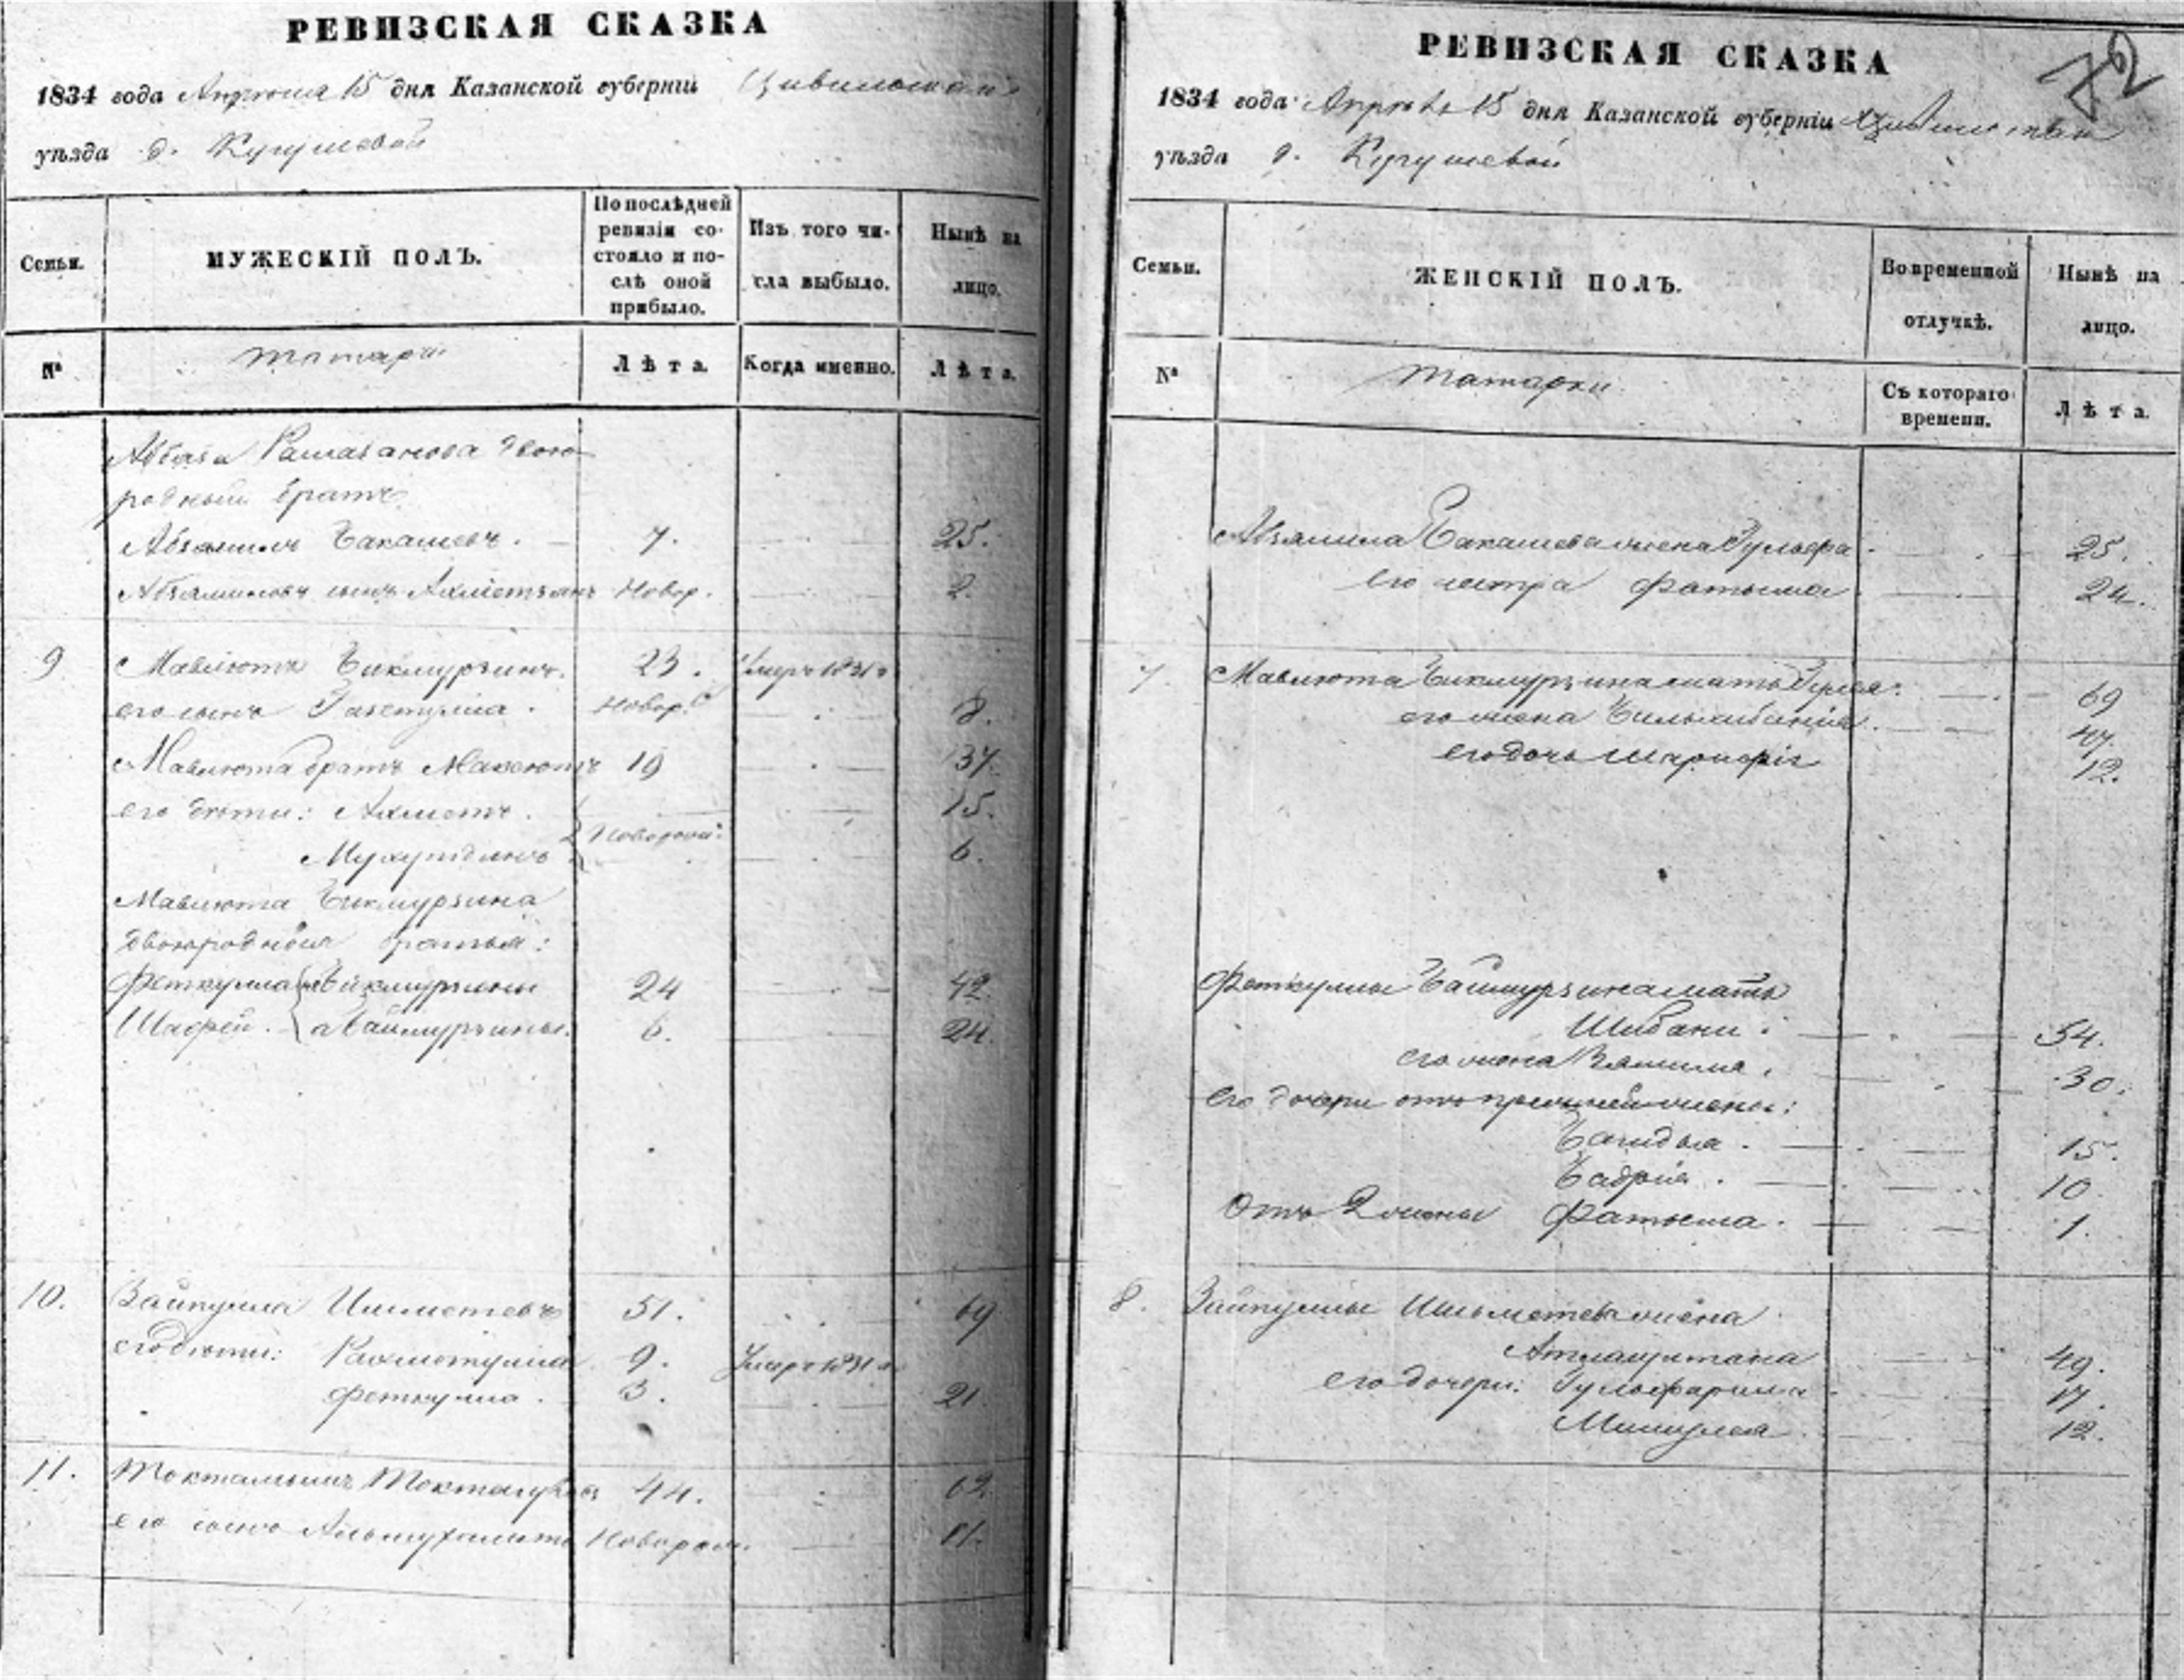 РЕВИЗСКАЯ СКАЗКА
1834 года Апрѣля 15 дня Казанской губерніи Цивильскаго
уѣзда д. Кугушевой
Семьи.
МУЖЕСКІЙ ПОЛЪ.
По послѣдней ревизіи состояло и послѣ оной прибыло.
Изъ того числа выбыло.
Нынѣ на лицо.
№
татары
Лѣта.
Когда именно.
Лѣта.
Аббаса Рамазанова двою-
родный братъ
Абзямилъ Бакашевъ. 7. 25.
Абзямиловъ сынъ Ахметзянъ Новор. 2.
9 Мавлютъ Бикмурзинъ. 23. Умеръ 1831
его сынъ Новор. 8.
Мавлюта братъ Максютъ 19 37.
его дѣти: Ахметъ. 15.
Новорож:
6.
Мавлюта Бикмурзина
двоюродныя братья:
Феткулла Бикмурзины 24 42.
Шафей. а Баймурзины. 6. 24.
10. Зайпулла Ишметевъ 51. 69
его дѣти: Рахметулла 9. Умеръ 1831
Феткулла. 3. 21
11. Токтамышъ 44. 62.
его сынъ Альмухаметъ Новорож. 11.
РЕВИЗСКАЯ СКАЗКА
72
1834 года Апрѣля 15 дня Казанской губерніи Цивильскаго
уѣзда д. Кугушевой
Семьи.
ЖЕНСКІЙ ПОЛЪ.
Во временной отлучкѣ.
Нынѣ на лицо.
№
татарки
Съ котораго времени.
Лѣта.
Абзямила Бакашева жена 25.
Его сестра Фатыма 24.
7. Мавлюта Бикмурзина мать 69
его жена 47.
его дочь 12.
Феткуллы Баймурзина мать
Шибани. 54.
его жена 30.
Его дочери отъ прежней жены:
15.
Бадрія. 10
Отъ 2 жены Фатыма. 1.
8. Зайпуллы Ишметева жена
49.
его дочери: 17.
12.